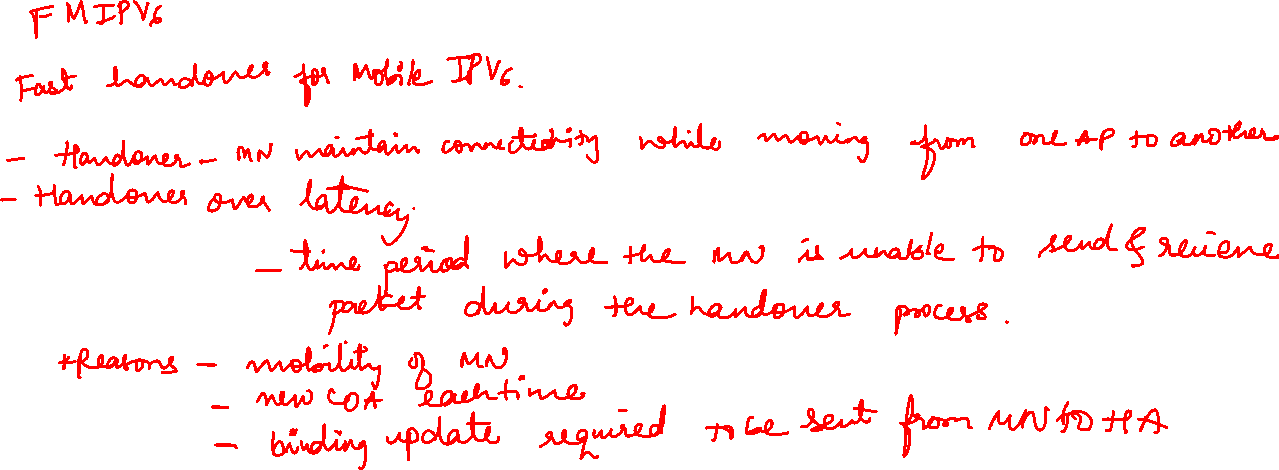 FMIPV6
Fast handover for Mobile IPV6.
- Handover - MN maintain connectivity while moving from one AP to another
- Handover over latency.
- time period where the MN is unable to send & recieve
packet during the handover process.
*Reasons - mobility of MN
- new COA each time
- binding update required to be sent from MN to HA